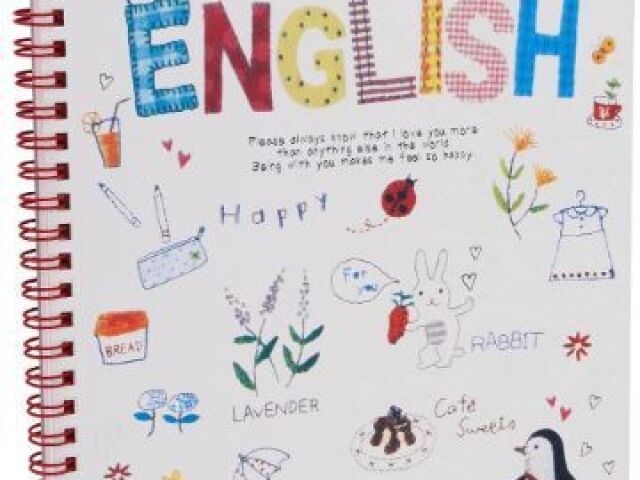 ENGLISH
Please always know that I love you more
than anything else in the world
Being with you makes me feel so happy
Happy
For
you
BREAD
RABBIT
LAVENDER
Cafe
Sweets